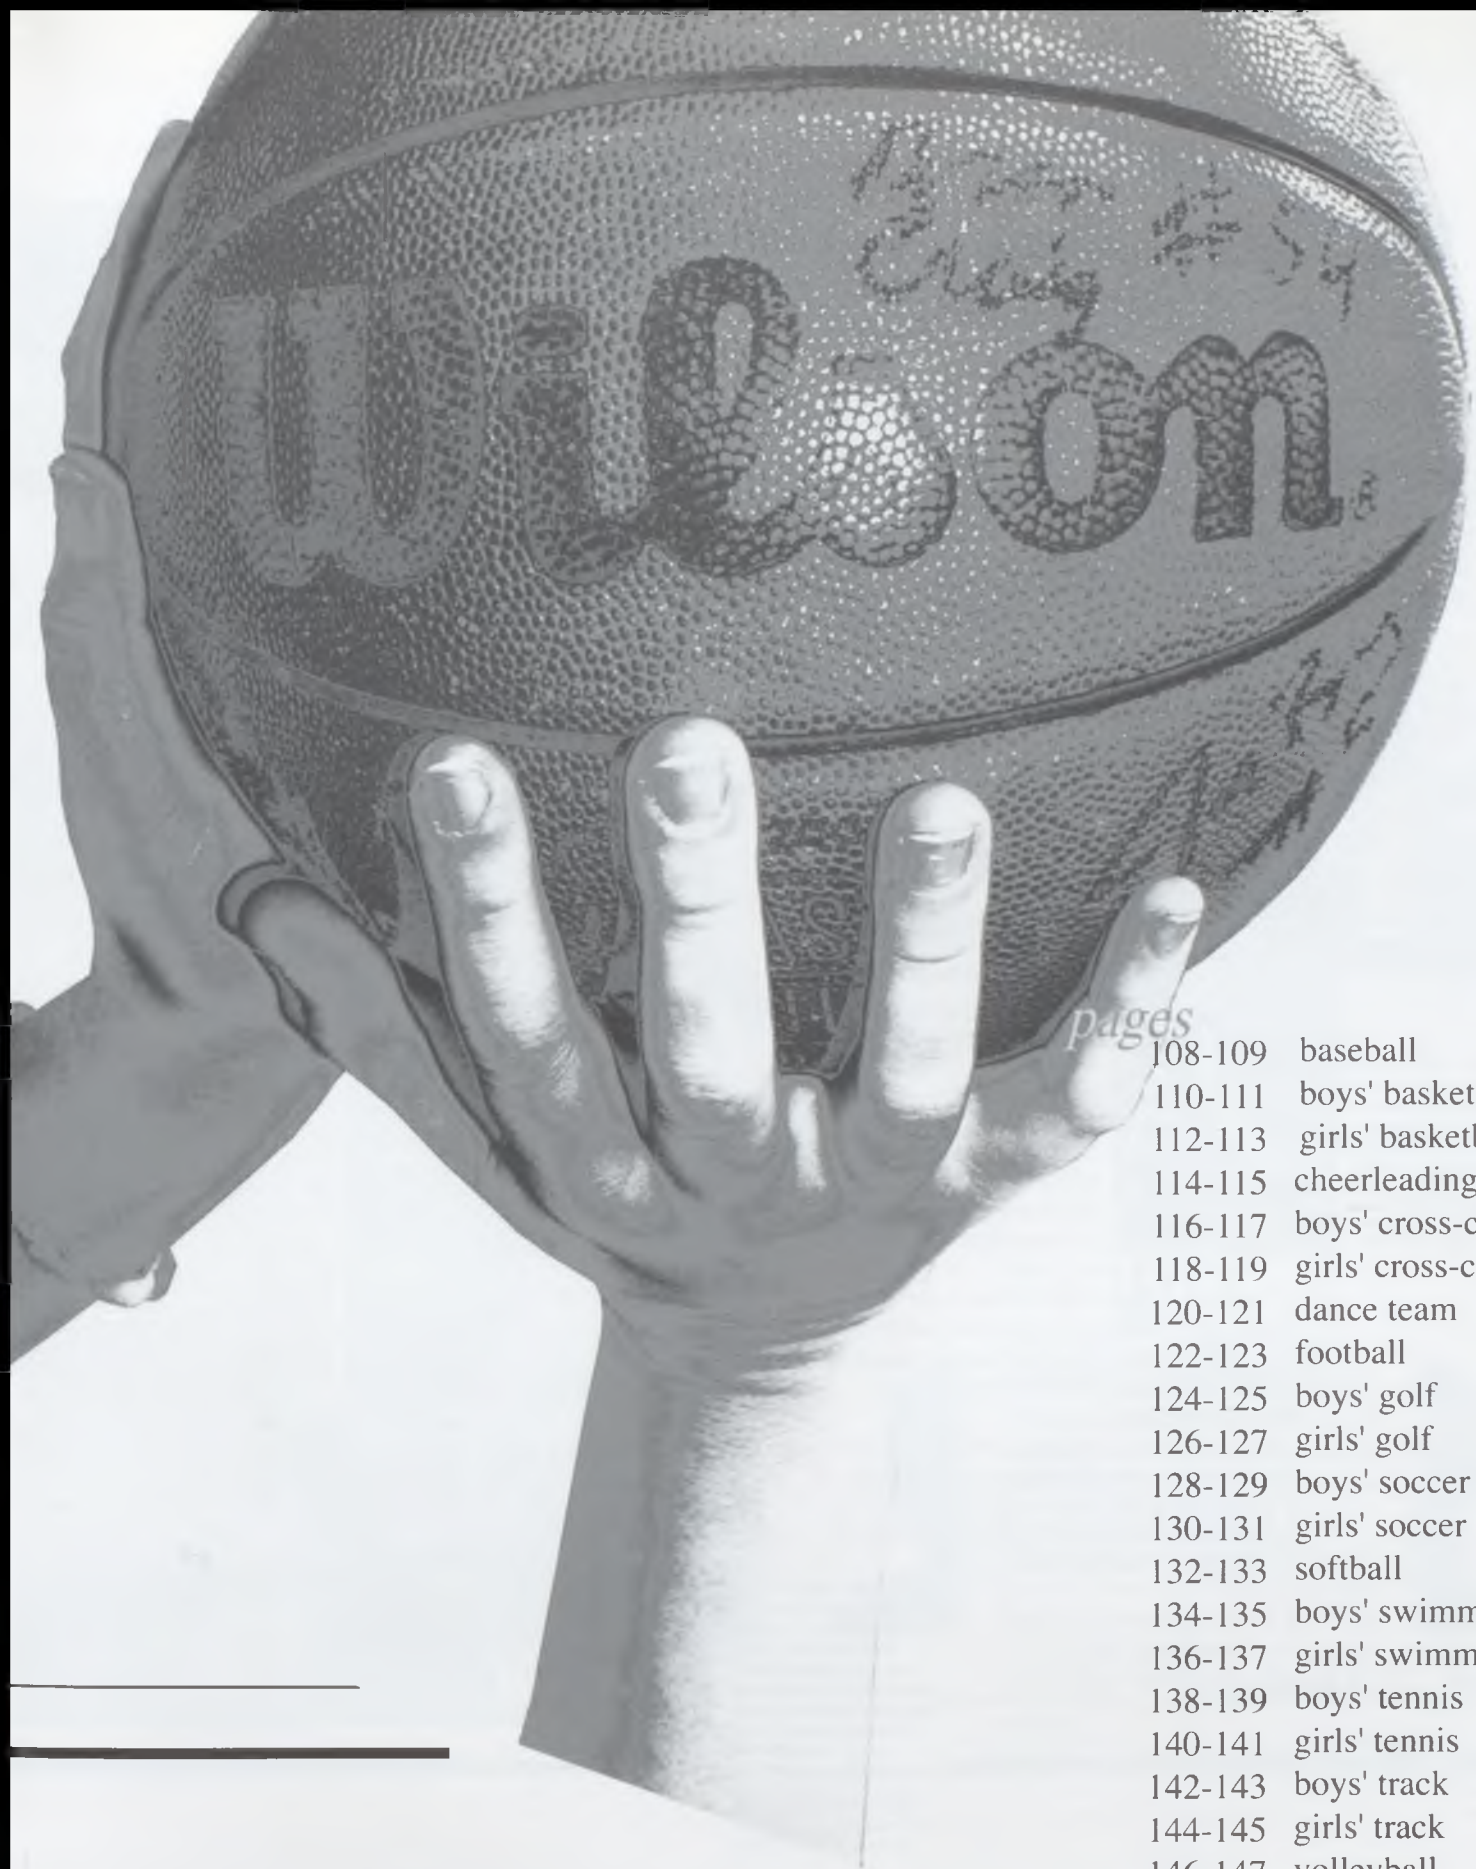 wilson
pages
108-109 baseball
110-111 boys' basket
112-113 girls' basketb
114-115 cheerleading
116-117 boys' cross-c
118-119 girls' cross-c
120-121 dance team
122-123 football
124-125 boys' golf
126-127 girls' golf
128-129 boys' soccer
130-131 girls' soccer
132-133 softball
134-135 boys' swimm
136-137 girls' swimm
138-139 boys' tennis
140-141 girls' tennis
142-143 boys' track
144-145 girls' track
146-147 volleyball